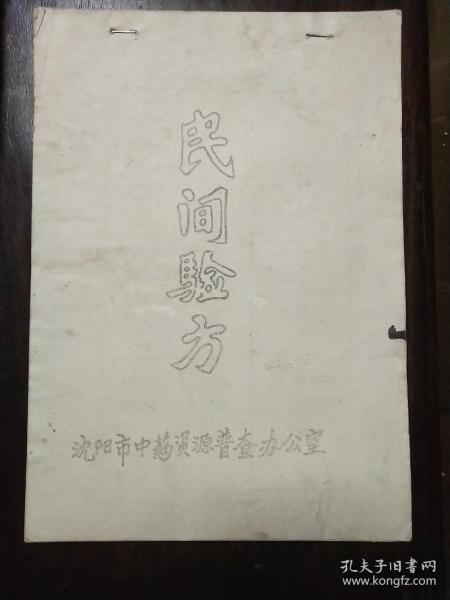 民间验方
沈阳市中药资源普查办公室
孔夫子旧书网
www.kongfz.com